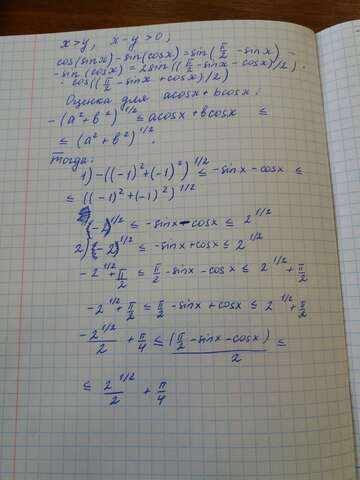 x > y, x - y > 0;
cos(sinx) - sin(cosx) = sin(π/2 - sinx) -
- sin(cosx) = 2sin((π/2 - sinx - cosx)/2) ·
· cos((π/2 - sinx + cosx)/2)
Оценка для acosx + bcosx:
-(a² + b²)^1/2 ≤ acosx + bcosx ≤
≤ (a² + b²)^1/2.
Тогда:
1) -((-1)² + (-1)²)^1/2 ≤ -sinx - cosx ≤
≤ ((-1)² + (-1)²)^1/2
(-2)^1/2 ≤ -sinx - cosx ≤ 2^1/2
2) (-2)^1/2 ≤ -sinx + cosx ≤ 2^1/2
-2^1/2 + π/2 ≤ π/2 - sinx - cosx ≤ 2^1/2 + π/2
-2^1/2 + π/2 ≤ π/2 - sinx + cosx ≤ 2^1/2 + π/2
-2^1/2/2 + π/4 ≤ (π/2 - sinx - cosx)/2 ≤
≤ 2^1/2/2 + π/4